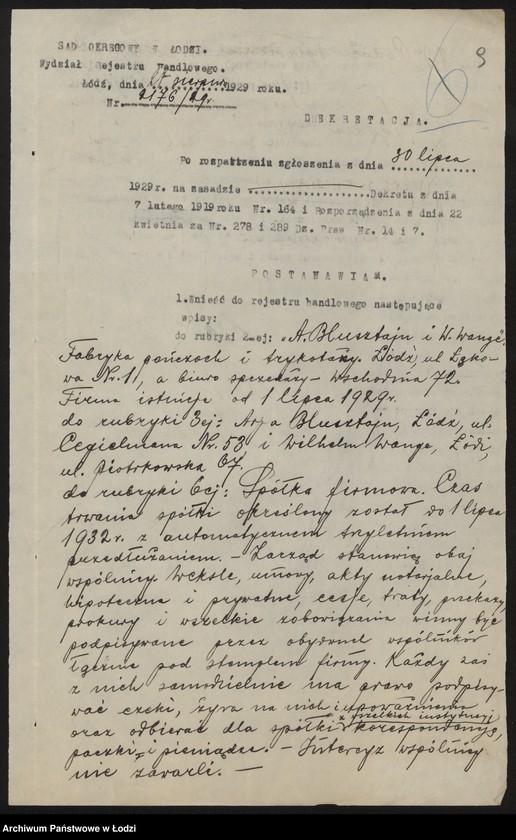 9
SĄD OKRĘGOWY W ŁODZI.
Wydział Rejestru Handlowego.
Łódź, dnia sierpnia 1929 roku.
Nr. 2176/29r.
DEKRETACJA.
Po rozpatrzeniu zgłoszenia z dnia 30 lipca
1929r. na zasadzie Dekretu z dnia
7 lutego 1919 roku Nr. 164 i Rozporządzenia z dnia 22
kwietnia za Nr. 278 i 289 Dz. Praw Nr. 14 i 7.
POSTANAWIAM.
1.Wnieść do rejestru handlowego następujące
wpisy:
do rubryki 2-ej: "A. Blusztajn i W. Wange",
Fabryka pończoch i trykotaży. Łódź, ul. Łąko-
wa Nr. 11, a biuro sprzedaży - wschodnia 72.
Firma istnieje od 1 lipca 1929r.
do rubryki 3ej: Blusztajn, Łódź, ul.
Cegielniana Nr. 53 i Wilhelm Wange, Łódź,
ul. Piotrkowska 67.
do rubryki 6ej: Spółka firmowa. Czas
trwania spółki określony został do 1 lipca
1932r. z automatycznem trzyletniem
przedłużaniem. - Zarząd stanowią obaj
wspólnicy. Weksle, umowy, akty notarjalne,
hipoteczne i prywatne, cesje, traty, przekazy,
prokury i wszelkie zobowiązania winny być
podpisywane przez obydwuch wspólników
łącznie pod stemplem firmy. Każdy zaś
z nich samodzielnie ma prawo podpisy-
wać czeki, żyra na nich i upoważnienia
oraz odbierać dla spółki z wszelkich instytucji korespondencję,
paczki i pieniądze. - Intercyz wspólnicy
nie zawarli. -
Archiwum Państwowe w Łodzi